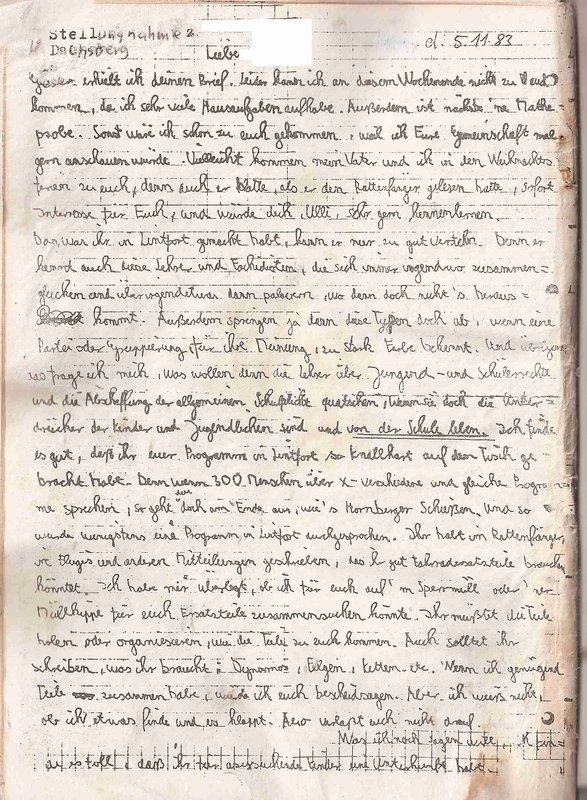 Stellungnahme z.
Dachsberg
Liebe d. 5.11.83
Gestern erhielt ich deinen Brief. Leider kann ich an diesem Wochenende nicht zu euch
kommen, da ich sehr viele Hausaufgaben aufhabe. Außerdem ist nächste 'ne Mathe-
probe. Sonst wäre ich schon zu euch gekommen, weil ich Eure Gemeinschaft mal
gern anschauen würde. Vielleicht kommen mein Vater und ich in den Weihnachts
ferien zu euch, denn auch er hatte, als er den Rattenfänger gelesen hatte, sofort
Interesse für Euch, und würde dich, Ulli, sehr gern kennenlernen.
Das, was ihr in Lintfort gemacht habt, kann er nur zu gut verstehn. Denn er
kennt auch diese Lehrer und Fachidioten, die sich immer irgendwo zusammen=
gleichen und über irgendetwas dann palavern, wo dann doch nicht's heraus=
kommt. Außerdem springen ja dann diese Typen doch ab, wenn eine
Partei oder Gruppierung, für ihre Meinung, zu stark Farbe bekennt. Und übrigens
was frage ich mich, was wollen denn die Lehrer über Jungend- und Schülerrechte
und die Abschaffung der allgemeinen Schulpflicht quatschen, wenn sie doch die Unter=
drücker der Kinder und Jugendlichen sind und von der Schule leben. Ich finde
es gut, daß ihr euer Programm in Lintfort so knallhart auf den Tisch ge
bracht habt. Denn wenn 300 Menschen über x-verschiedene und gleiche Program
me sprechen, so geht das doch am Ende aus, wie's Hornberger Schießen. Und so
wurde wenigstens eine Programm in Lintfort ausgesprochen. Ihr habt im Rattenfänger,
in Flugis und anderen Mitteilungen geschrieben, das ihr gut Fahrradersatzteile brauchen
könntet. Ich habe mir überlegt, ob ich für euch auf'm Sperrmüll oder 'ner
Müllkippe für euch Ersatzteile zusammensuchen könnte. Ihr müßtet die Teile
holen oder organisieren, wie die Teile zu euch kommen. Auch solltet ihr
schreiben, was ihr braucht: Dynamos, Felgen, Ketten etc. Wenn ich genügend
Teile zusammen habe, würde ich euch bescheidsagen. Aber ich weiß nicht,
ob ich etwas finde und es klappt. Also verlaßt euch nicht drauf.
Was ich noch sagen wollte, ich fin=
de es toll, daß ihr für asylsuchende Kinder eine Unterkunft habt.